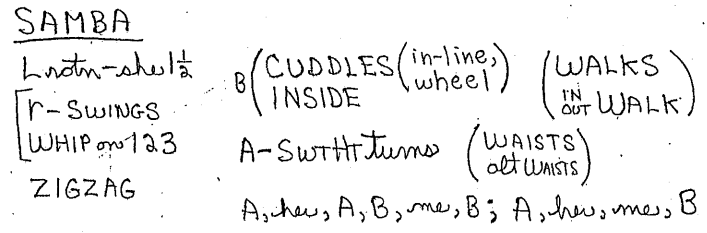 SAMBA
L rotn-she L ½
r-SWINGS
WHIP on 123
ZIGZAG
B (CUDDLES (in-line, wheel)
INSIDE
(WALKS
IN OUT WALK)
A-SWTHT turns (WAISTS
alt WAISTS)
A, her, A, B, me, B; A, her, me, B